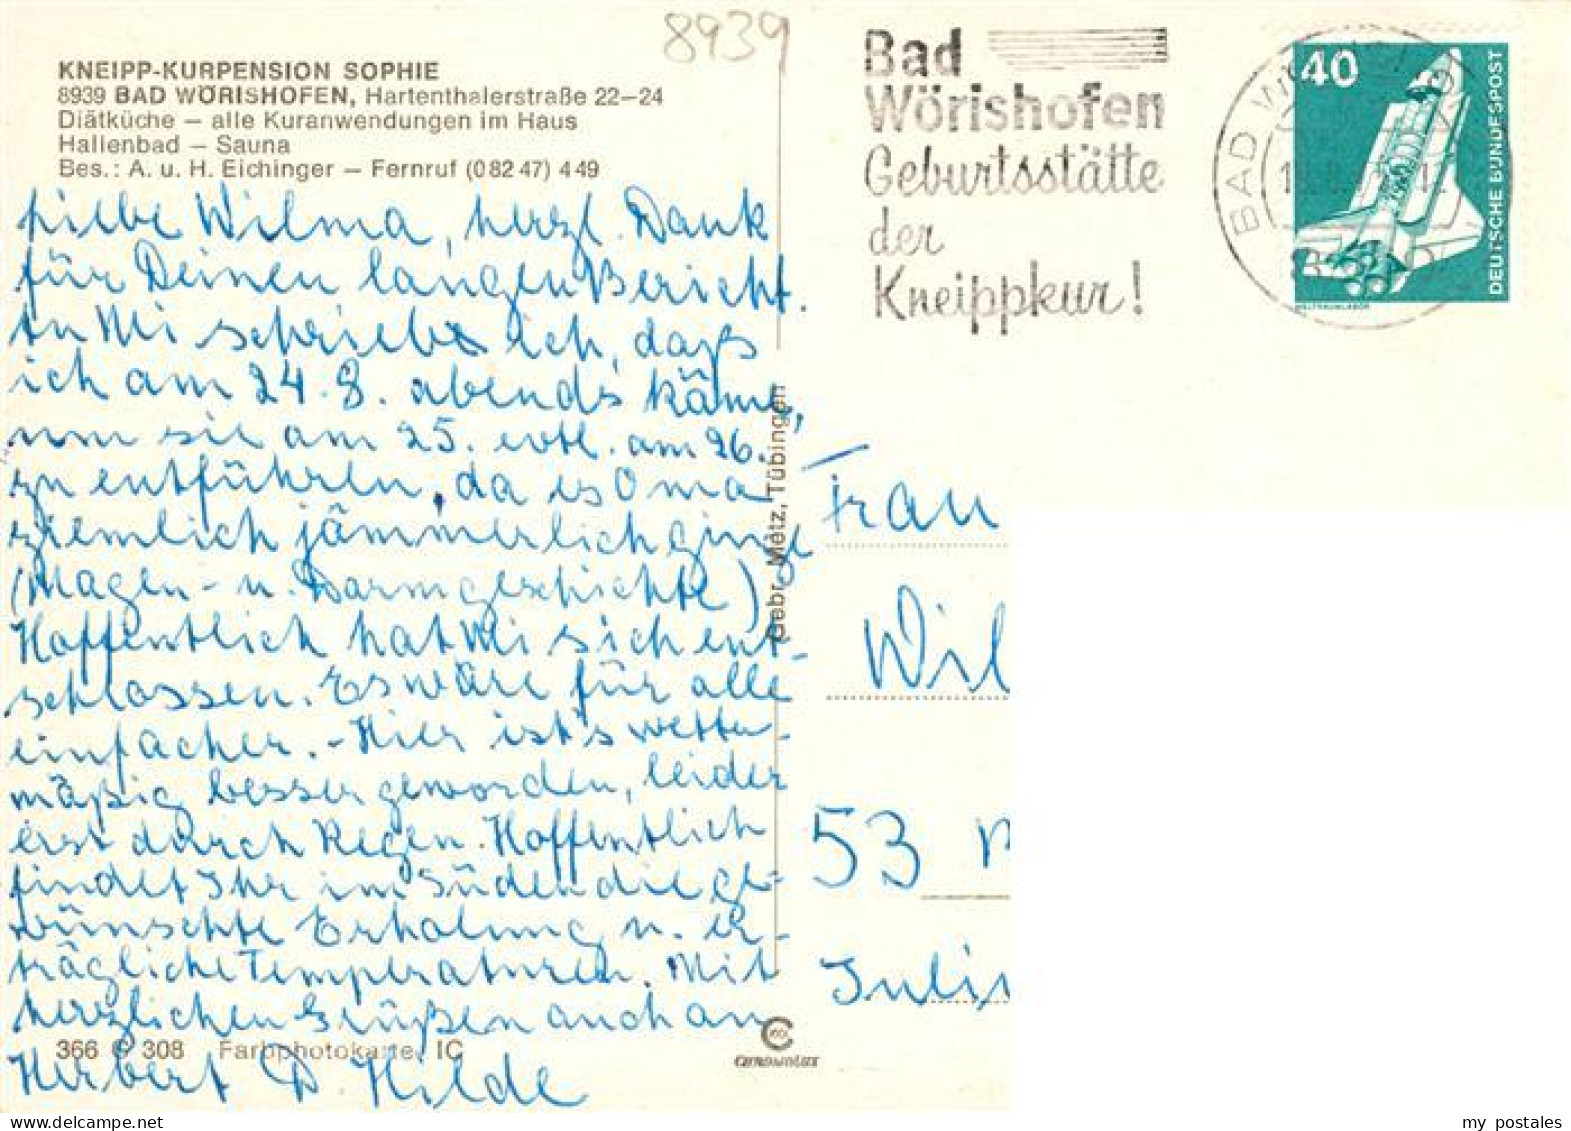 8939
KNEIPP-KURPENSION SOPHIE
8939 BAD WÖRISHOFEN, Hartenthalerstraße 22–24
Diätküche – alle Kuranwendungen im Haus
Hallenbad – Sauna
Bes.: A. u. H. Eichinger – Fernruf (0 82 47) 4 49
Liebe Wilma, herzl. Dank
für Deinen langen Bericht.
An Mi schrieb ich, dass
ich am 24.8. abends käme,
um sie am 25. evtl. am 26.
zu entführen, da es Oma
ziemlich jämmerlich ginge
(Magen- u. Darmgeschichte)
Hoffentlich hat Mi sich ent-
schlossen. Es wäre für alle
einfacher. - Hier ist's wetter-
mäßig besser geworden, leider
erst durch Regen. Hoffentlich
findet Ihr im Süden die ge-
wünschte Erholung u. er-
trägliche Temperaturen. Mit
herzlichen Grüßen auch an
Herbert D. Hilde
366 G 308 Farbphotokarte IC
Gebr. Metz, Tübingen
Bad
Wörishofen
Geburtsstätte
der
Kneippkur!
BAD
40
DEUTSCHE BUNDESPOST
WELTRAUMLABOR
Frau
Wil
53
Juli
my postales
www.delcampe.net